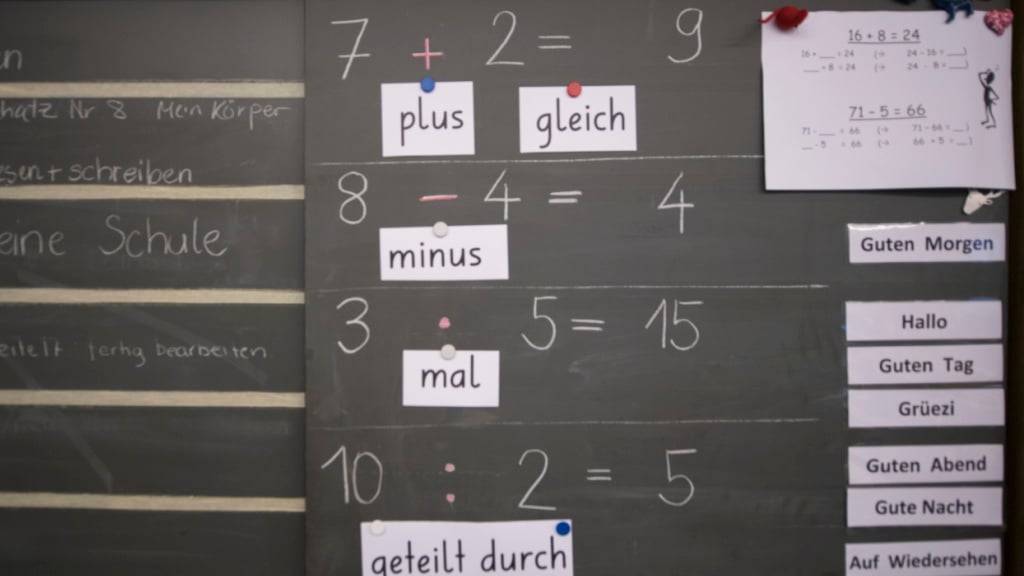 n
hatz Nr 8 Mein Körper
esen + schreiben
eine Schule
fertig bearbeiten
7 + 2 = 9
plus gleich
8 - 4 = 4
minus
3 · 5 = 15
mal
10 : 2 = 5
geteilt durch
16 + 8 = 24
16 + __ = 24 (→ 24 - 16 = __)
__ + 8 = 24 (→ 24 - 8 = __)
71 - 5 = 66
71 - __ = 66 (→ 71 - 66 = __)
__ - 5 = 66 (→ 66 + 5 = __)
Guten Morgen
Hallo
Guten Tag
Grüezi
Guten Abend
Gute Nacht
Auf Wiedersehen